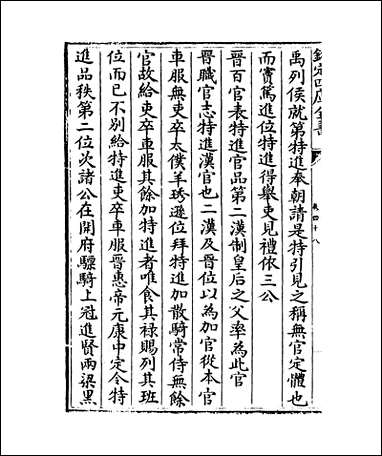 欽定四庫全書
卷四十八
禹列侯就第特進奉朝請是特引見之稱無官定體也
而實篤進位特進得舉吏見禮依三公
晉百官表特進官品第二漢制皇后之父率為此官
晉職官志特進漢官也二漢及晉位以為加官從本官
車服無吏卒太僕羊琇遜位拜特進加散騎常侍無餘
官故給吏卒車服其餘加特進者唯食其禄賜列其班
位而已不别給特進吏卒車服晉惠帝元康中定令特
進品秩第二位次諸公在開府驃騎上冠進賢兩梁黑